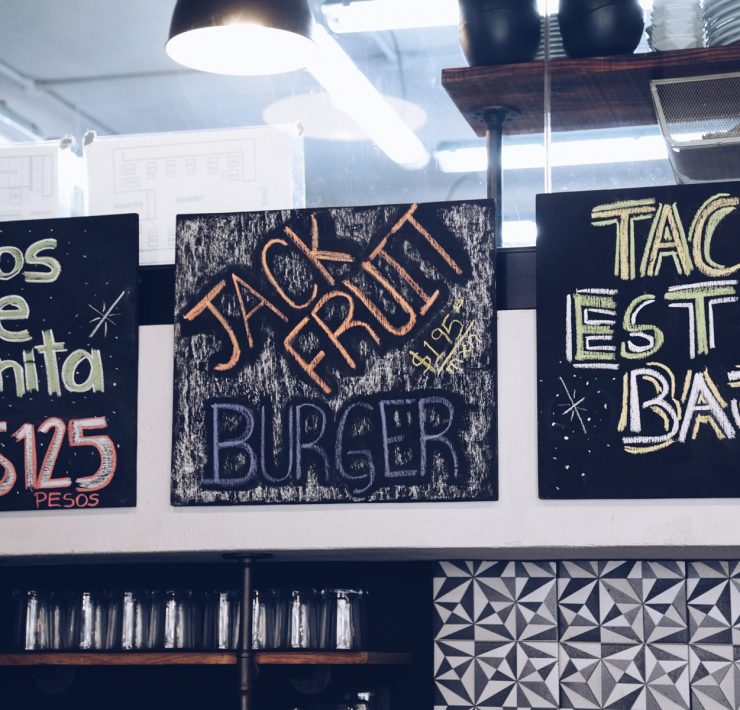 os
e
nita
$125
PESOS
JACK
FRUIT
$195
mxn
BURGER
TAC
EST
BAJ